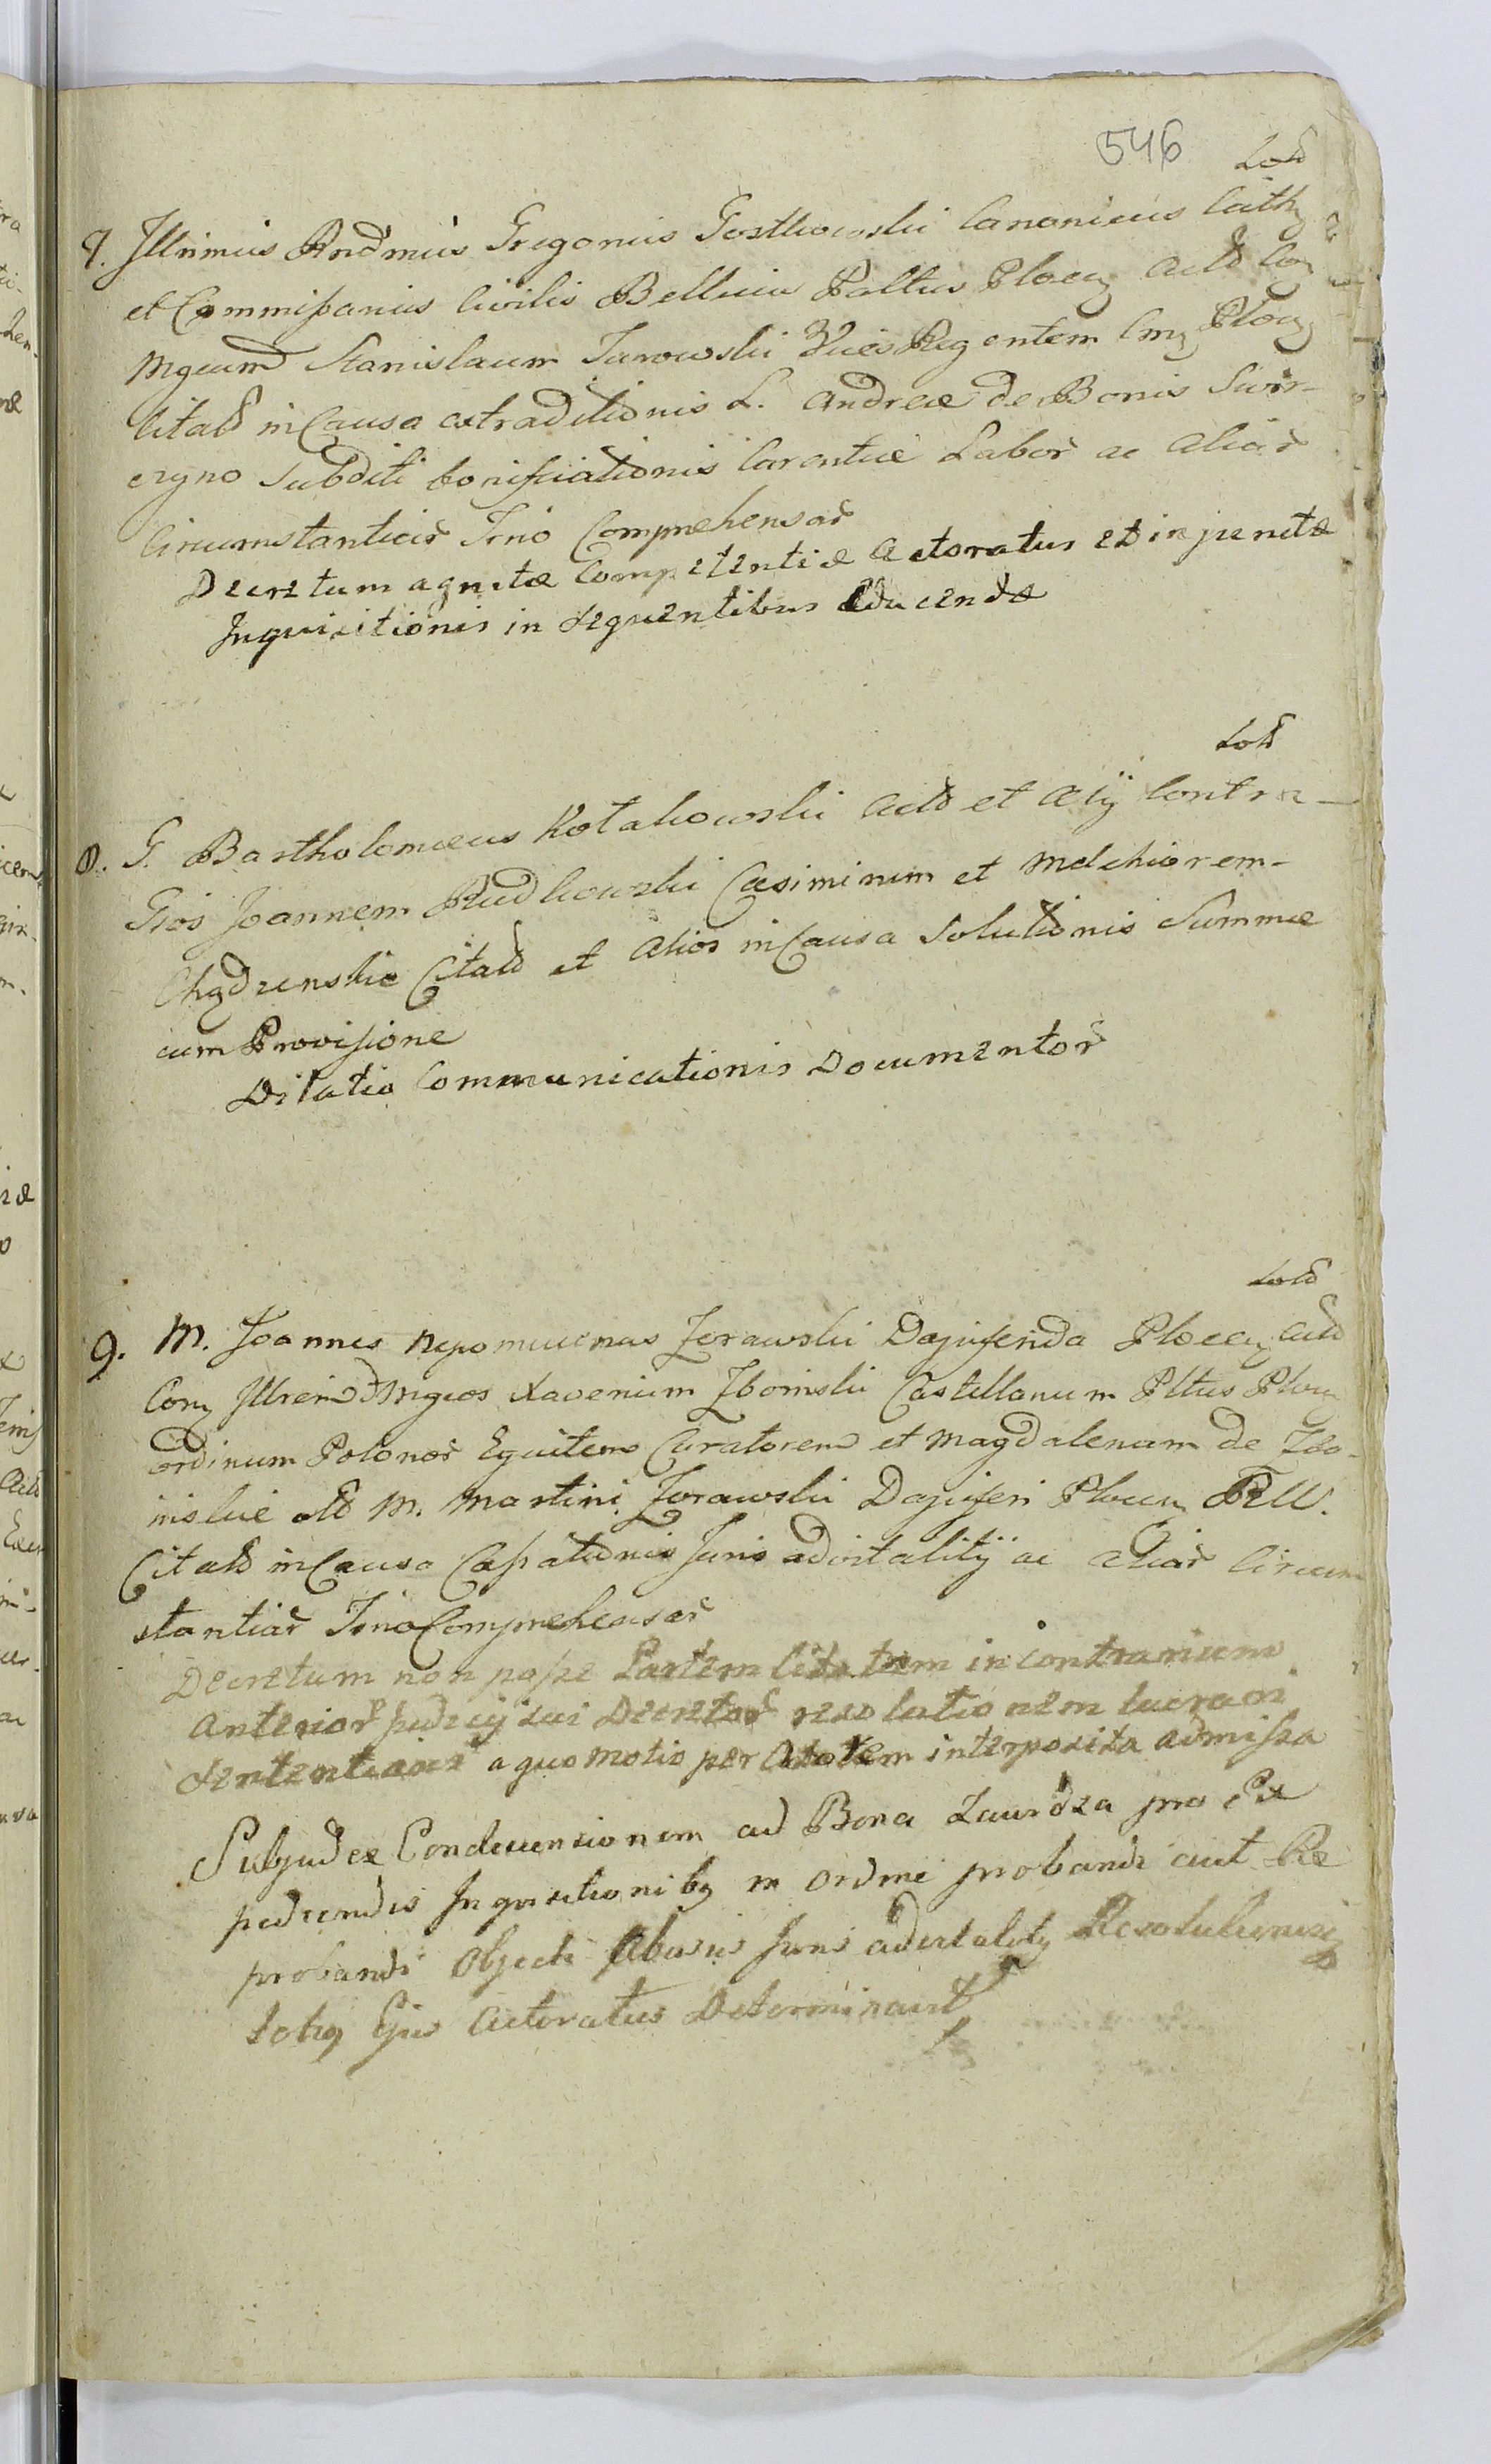 546
7. Illrimus Rndmus Gregorius Gostkowski Canonicus Cath
et Commissarius Civilis Bellicus Paltus Plocen Actor Con
Mgcum Stanislaum Turowski Vices Regentem Plocen
Citatt in Causa extraditionis L. Andreæ de Bonis Swier-
czyno Subditi bonificationis Carentiæ Labor ac aliar
Circumstantiar Tmo Comprehensar
Decretum agnitæ Competentiæ Actoratus et injunctæ
Inquisitionis in sequentibus educendæ
8. G. Bartholomæus Kotakowski Actor et alÿ Contra
Gsos Joannem Rudkowski Casimirum et Melchiorem
Chądzenskie Citatt et alios in Causa Solutionis Summæ
cum Provisione
Dilatio Communicationis Documentor
9. M. Joannes Nepomucenus Zorawski Dapiferida Plocen Actor
Con Illrem Mgcos Xaverium Zboinski Castellanum Pltus Plocen
Ordinum Polonor Equitem Curatorem et Magdalenam de Zbo-
inskie olt M. Martini Zorawski Dapiferi Plocen
Citatt in Causa Cassationis Juris advitalitÿ ac aliar Circum
stantiar Tmo Comprehensar
Decretum non posse Partem Citatam in contrarium
Anterior judicÿ sui Decretor resolutionem lucrari
Sententiavit a quo motio per Actorem interposita admissa
Subjudex Condescensionem ad Bona pro Ex
pediendis Inquisitionibq in Ordine probandi aut Re
probandi Objecti Abusus Juris advitalitÿ
Actoratus Determinavit